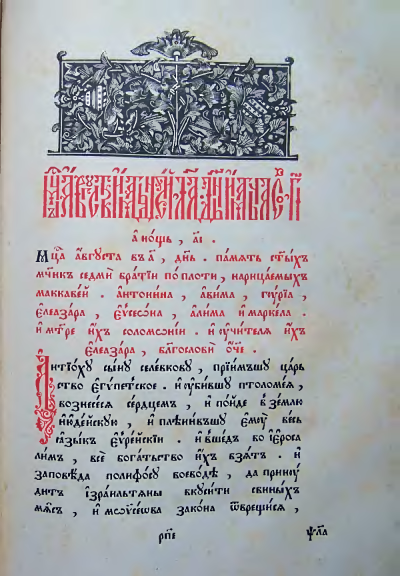 а нощь , аі .
Мцⷭ҇а а҆́вгꙋста въ а҃ , днь . память ст҃ы́хъ
мч҃нкъ седми братїи по плоти , нарицаемыхъ
маккавей . антонина , авима , гꙋрїа ,
елеазара , еѵсевона , алима и маркела .
и мт҃ре ихъ соломонїи . и ᲂучителя ихъ
елеазара , бл҃гослови ѻч҃е .
Антїохꙋ сынꙋ селевковꙋ , прїимъшꙋ царь
ство египетское . и ᲂубившꙋ птоломея ,
вознесеся сердцемъ , и пойде в землю
июдейскꙋю , и плѣнившꙋ емꙋ весь
ꙗзыкъ еврейскїи . и вшедъ во їерᲂса
лимъ , все богатьство ихъ взятъ . и
заповѣда полифосꙋ воеводѣ , да принꙋ
дитъ їзраильтяны вкꙋсити свиныхъ
мясъ , и мѡѵсеѡва закона ѿврещися ,
рп҃е